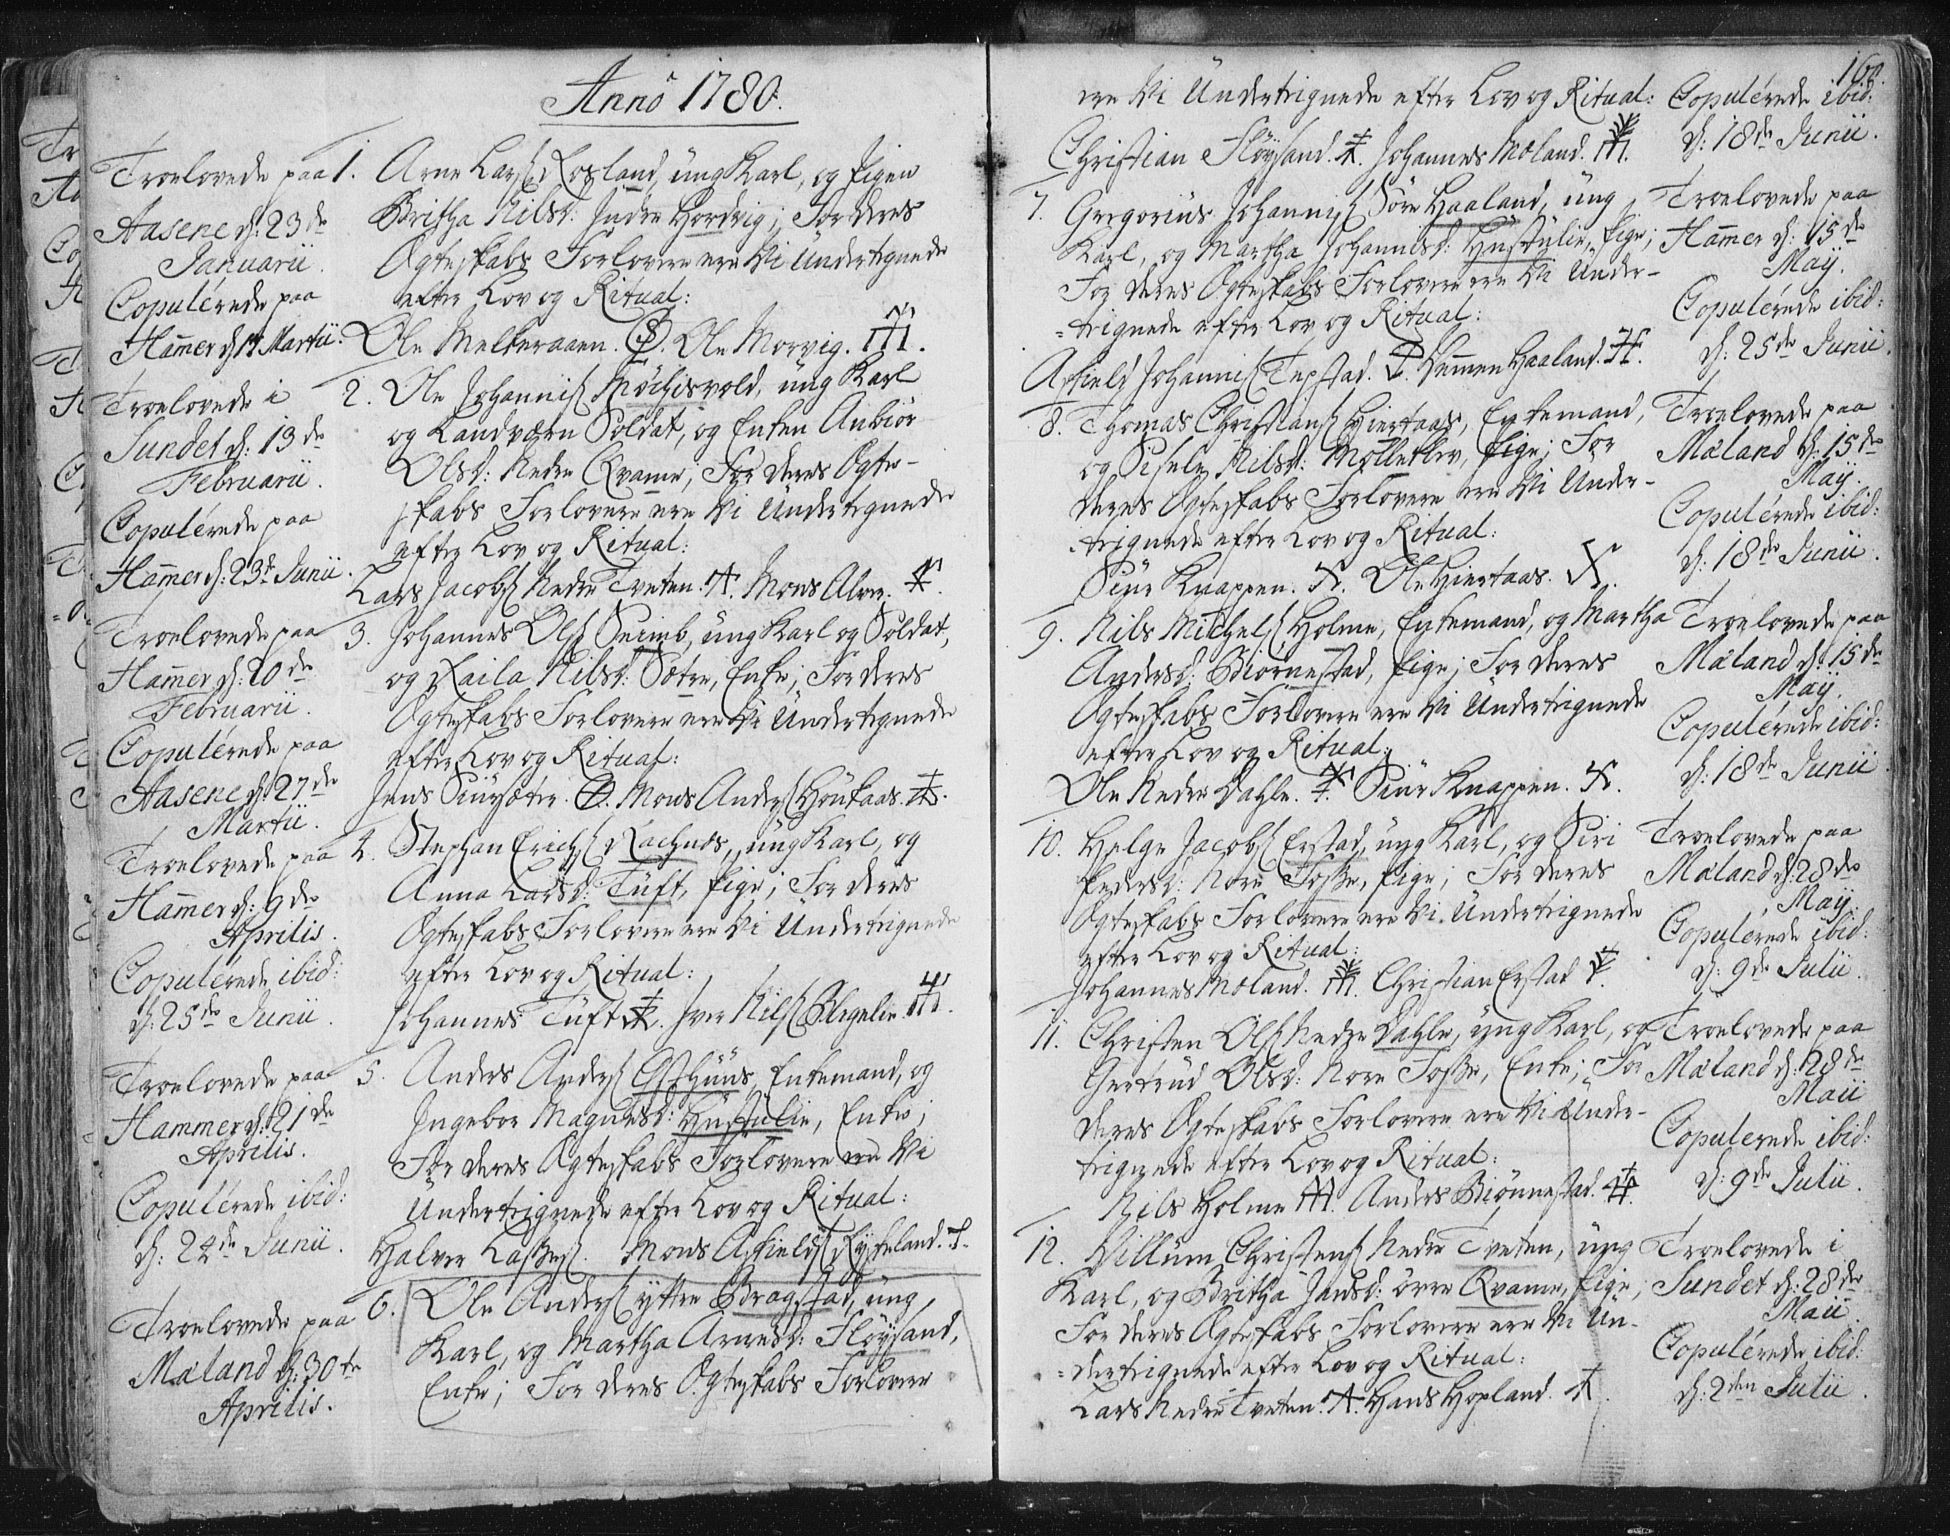 Anno 1780.
Troelovede paa
Aasene d: 23de
Januarii.
Copulérede paa
Hamer d: 17 Martii.
1. Arne Lars: Rosland, ung Karl, og Pigen
Britha Nilsd: Indre Hordvig; For deres
Ægteskabs Forlovere ere Vi Undertegnede
efter Lov og Ritual:
Ole Melkeraaen. Ole Morvig.
Troelovede i
Sundet d: 13de
Februarii.
Copulérede paa
Hamer d: 23de Junii.
2. Ole Johannis: Möchisvold, ung Karl
og Landværn Soldat, og Enken Anbiör
Olsd: Nedre Qvame; For deres Ægte-
skabs Forlovere ere Vi Undertegnede
efter Lov og Ritual:
Lars Jacobs: Nedre Tveten. Mons Alver.
Troelovede paa
Hamer d: 20de
Februarii.
Copulérede paa
Aasene d: 27de
Martii.
3. Johannes Ols: Sæimb, ung Karl og Soldat,
og Raila Nilsd: Sætre, Enke; For deres
Ægteskabs Forlovere ere Vi Undertegnede
efter Lov og Ritual:
Jens Mons Anders: Höukaas.
Troelovede paa
Hamer d: 9de
Aprilis.
Copulérede ibid:
d: 25de Junii.
4. Stephan Erichs: ung Karl, og
Anna Larsd: Tuft, Pige; For deres
Ægteskabs Forlovere ere Vi Undertegnede
efter Lov og Ritual:
Johannes Tuft. Iver Nils:
Troelovede paa
Hammer d: 21de
Aprilis.
Copulérede ibid:
d: 24de Junii.
5. Anders Anders: Enkemand, og
Ingebor Magnesd: Husdulie, Enke;
For deres Ægteskabs Forlovere ere Vi
Undertegnede efter Lov og Ritual:
Halver Lasses: Mons Askields: Rysteland.
Troelovede paa
Mæland d: 30te
Aprilis.
6. Ole Anders: yttre Bragstad, ung
Karl, og Martha Arnesd: Flöysand,
Enke; For deres Ægteskabs Forlovere
160.
ere Vi Undertegnede efter Lov og Ritual:
Christian Flöysand. Johannes Mæland.
Copulérede ibid:
d: 18de Junii.
7. Gregorius Johannis: Söre Haaland, ung
Karl, og Martha Johannesd: Husdulie, Pige;
For deres Ægteskabs Forlovere ere Vi Under-
-tegnede efter Lov og Ritual:
Askield Johannis: Tepstad. Hemmen Haaland.
Troelovede paa
Hamer d: 15de
Maij.
Copulérede ibid:
d: 25de Junii.
8. Thomas Christians: Hiertaas, Enkemand,
og Sisele Nilsd: Molleklev, Pige; For
deres Ægteskabs Forlovere ere Vi Under-
-tegnede efter Lov og Ritual:
Siur Knappen. Ole Hiertaas.
Troelovede paa
Mæland d: 15de
Maij.
Copulérede ibid:
d: 18de Junii.
9. Nils Michels: Holme, Enkemand, og Martha
Andersd: Biörnestad, Pige; For deres
Ægteskabs Forlovere ere Vi Undertegnede
efter Lov og Ritual:
Ole Nedre Dahle. Siur Knappen.
Troelovede paa
Mæland d: 15de
Maij.
Copulérede ibid:
d: 18de Junii
10. Helge Jacobs: Erstad, ung Karl, og Siri
Pedersd: Nore Fosse, Pige; For deres
Ægteskabs Forlovere ere Vi Undertegnede
efter Lov og Ritual:
Johannes Mæland. Christian Erstad
Troelovede paa
Mæland d: 28de
Maij.
Copulérede ibid:
d: 9de Julii.
11. Christen Ols: Nedre Dahle, ung Karl, og
Gertrud Olsd: Nore Fosse, Enke; For
deres Ægteskabs Forlovere ere Vi Under-
tegnede efter Lov og Ritual:
Nils Holme. Anders Biönnestad.
Troelovede paa
Mæland d: 28de
Maii
Copulerede ibid:
d: 9de Julii.
12. Villum Christens: Nedre Tveten, ung
Karl, og Britha Jensd: övre Qvame, Pige;
For deres Ægteskabs Forlovere ere Vi Un-
-dertegnede efter Lov og Ritual:
Lars Nedre Tveten. Hans Hopland.
Troelovede i
Sundet d: 28de
Maii.
Copulérede ibid:
d: 2den Julii.